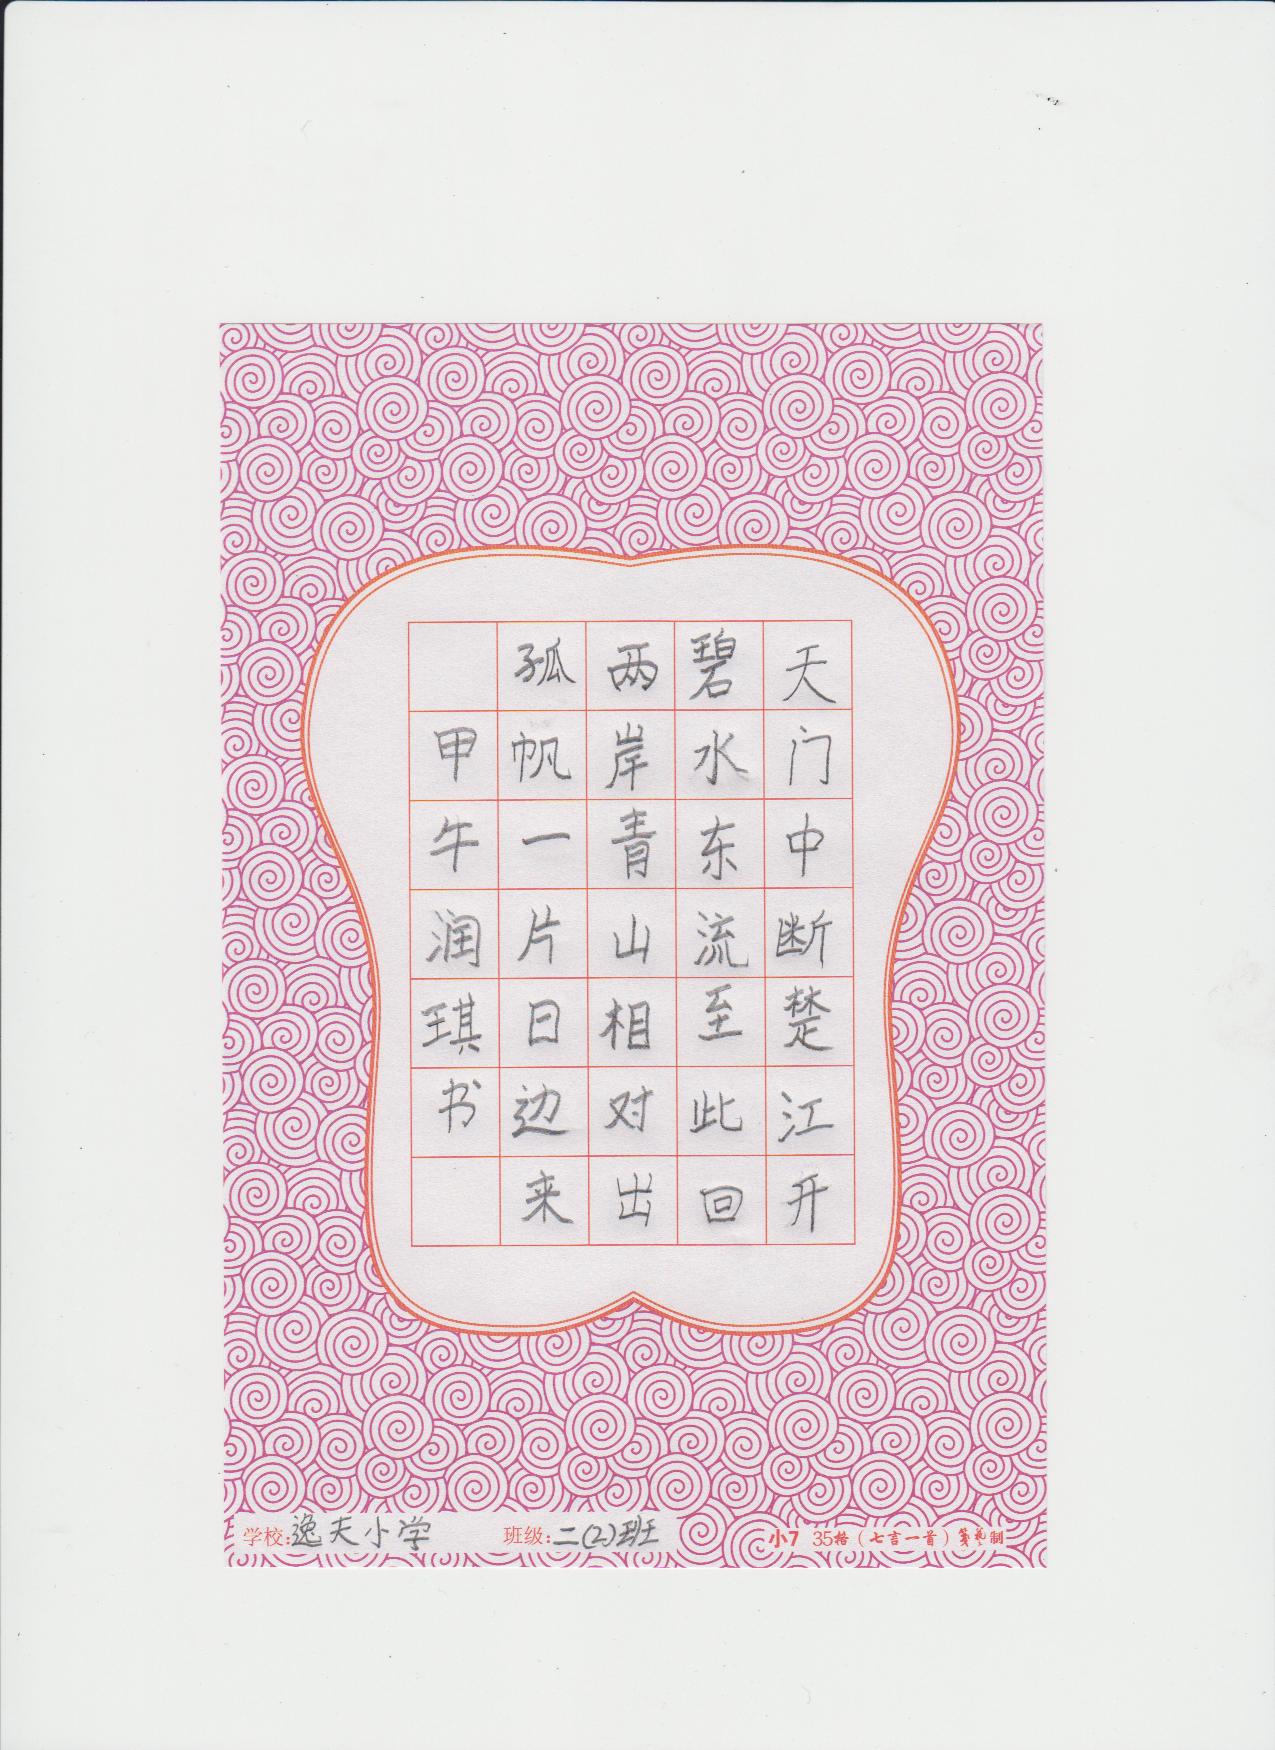 天门中断楚江开
碧水东流至此回
两岸青山相对出
孤帆一片日边来
甲午润琪书
学校:逸夫小学
班级:二(2)班
小7 35格(七言一首)笺艺制